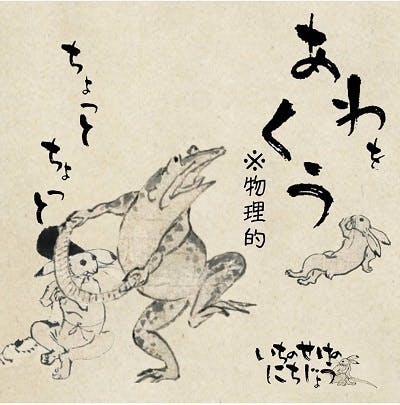 あわを
くう
※物理的
ちょっと
ちょっと
にちじょう